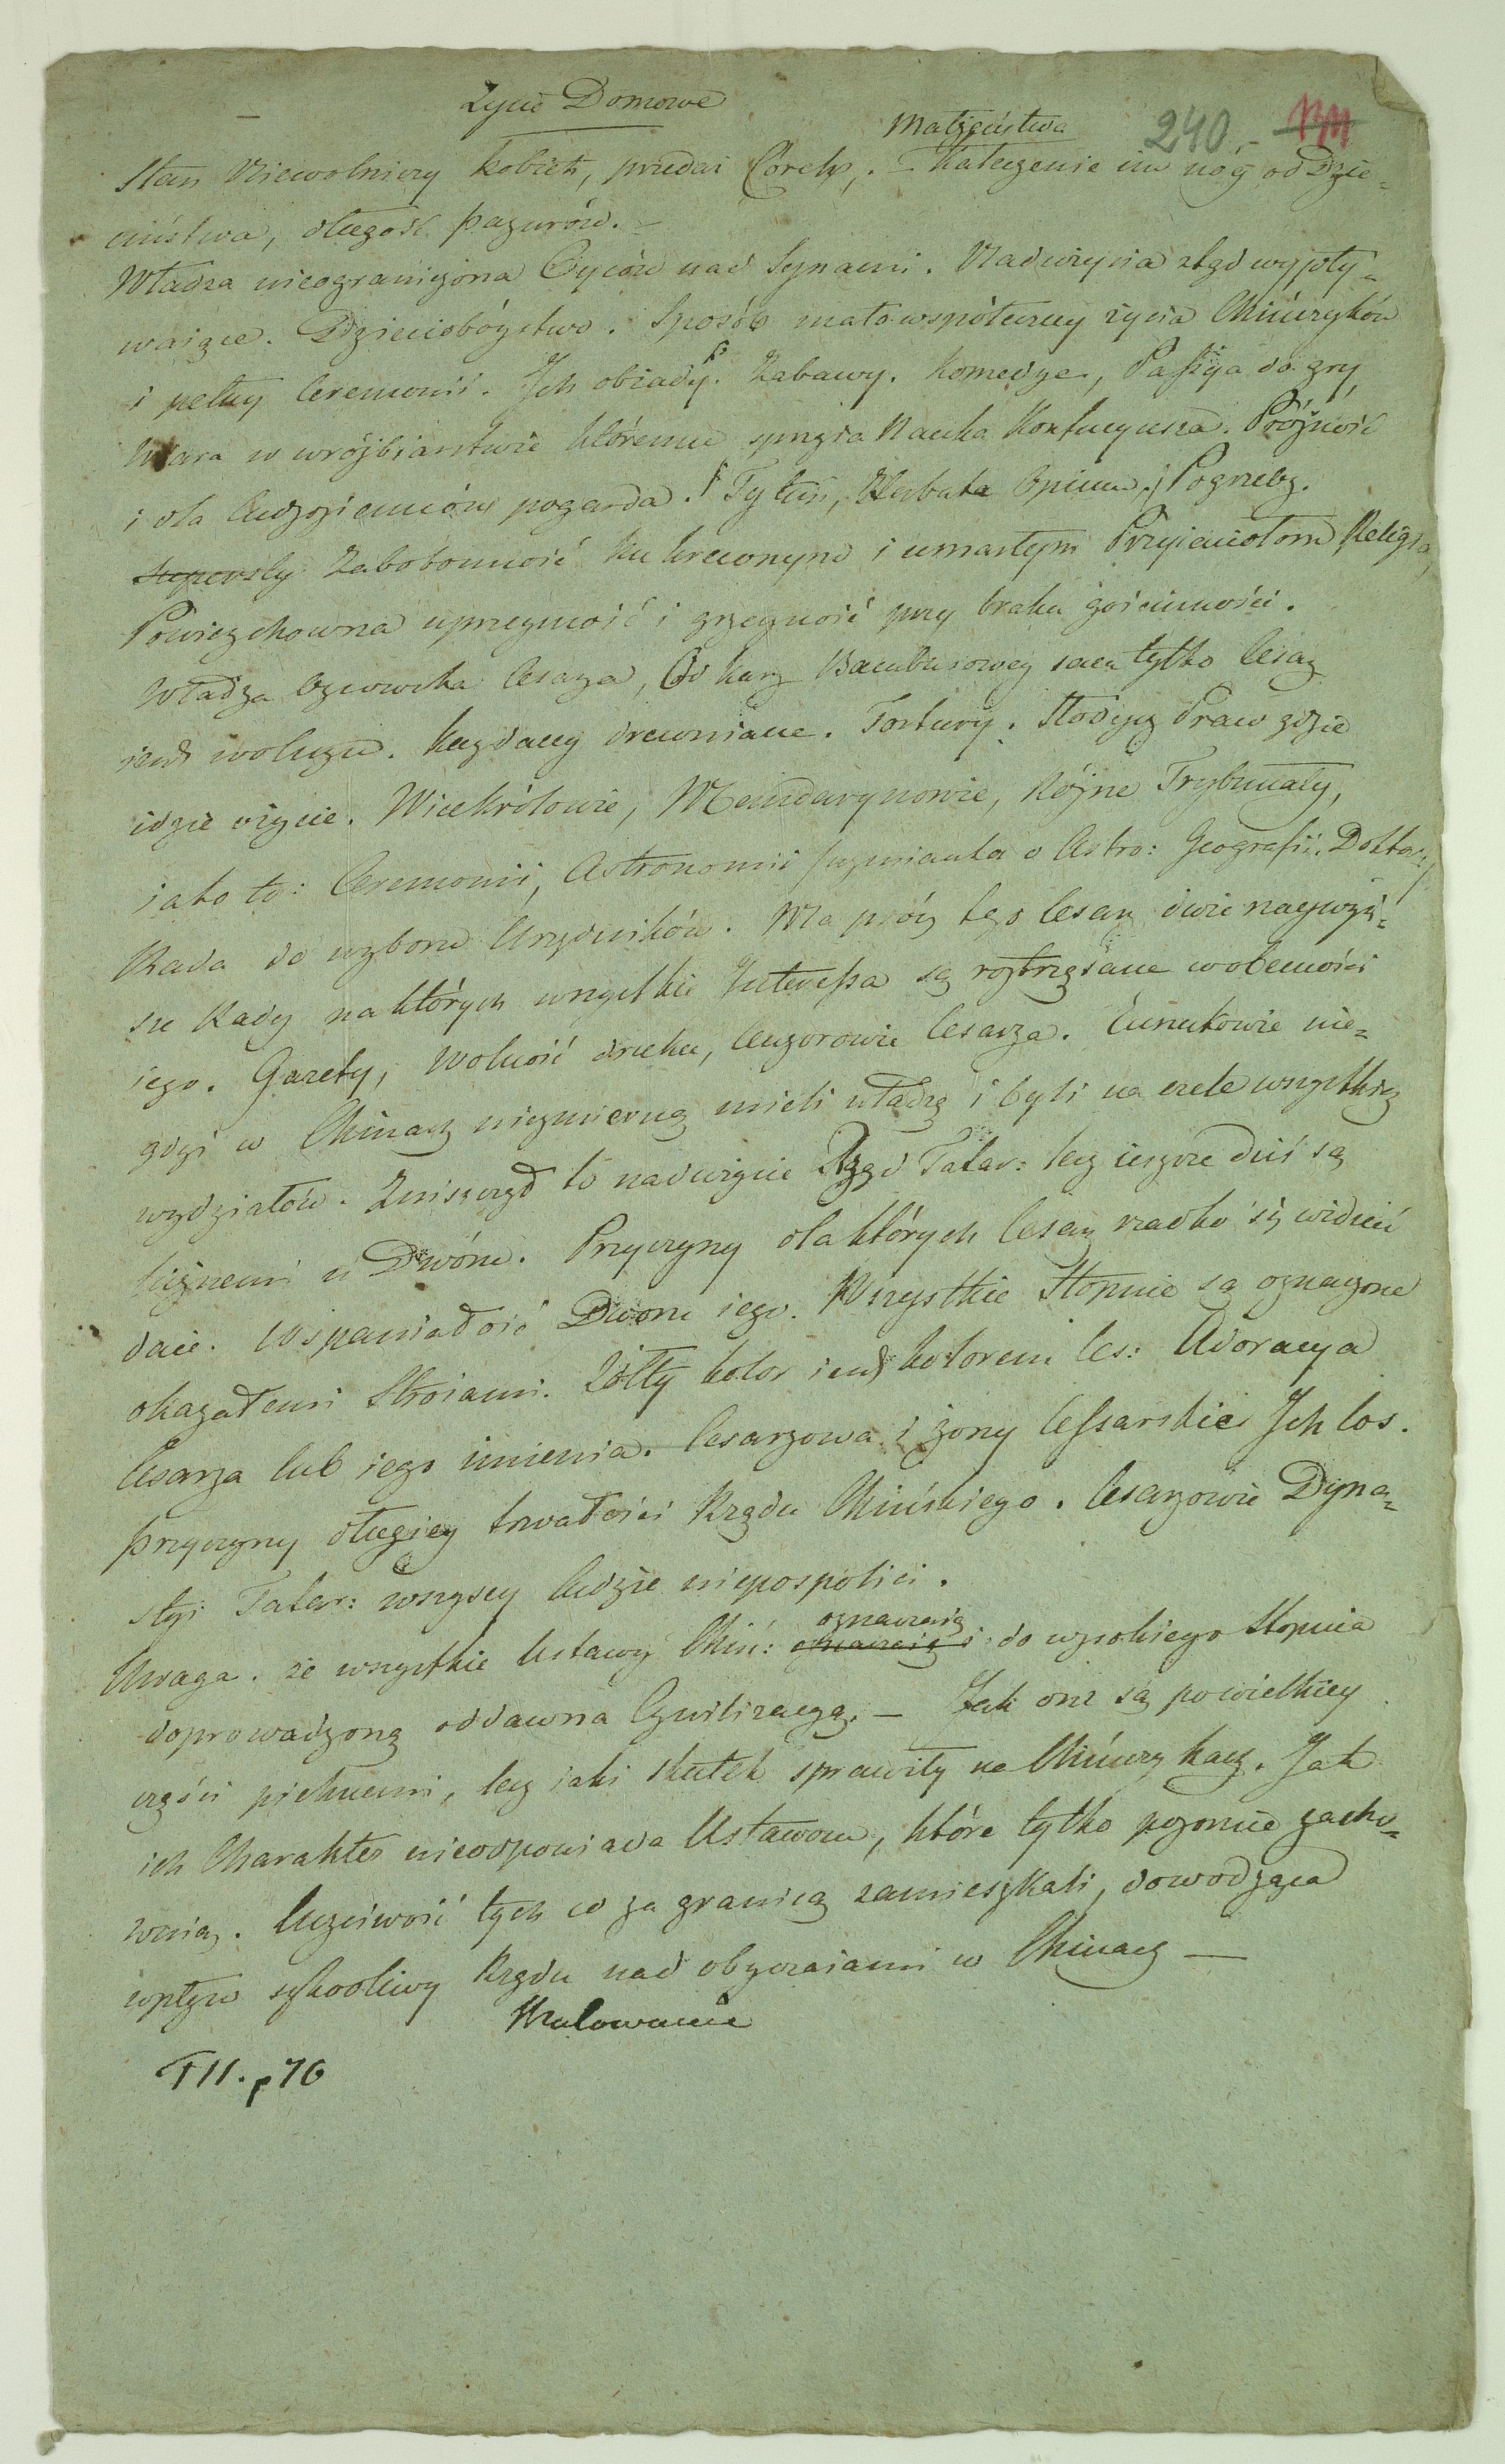 Życie Domowe
Małżeństwa 240
Stan Niewolniczy kobiet, przedaż Córek. – Kaleczenie im nóg od Dzie=
ciństwa, długość pazurów. –
Władza nieograniczona Oyców nad Synami. Nadużycia ztąd wypły=
waiące. Dzieciobóystwo. Sposób mało współeczny życia Chińczyków
i pełny Ceremonii. Ich obiady. Zabawy. Komedye, Passya do gry,
Wiara w wróżbiarstwie któremu sprzyia Nauka Konfucyusza. Próżność
i dla Cudzoziemców pogarda. Tytuń, Herbata Opium. Pogrzeby.
Zabobonność ku krewnym i umarłym Przyiaciołom Religia,
Powierzchowna uprzeymość i grzeczność przy braku gościnności.
Władza Oycowska Cesarza, Od kary Bambusowey sam tylko Cesarz
iest wolnym. Kaydany drewniane. Tortury. Kodex Praw gdzie
idzie o życie. Wicekrólowie, Mandarynowie, Różne Trybunały,
iako to: Ceremonii, Astronomii wzmianka o Astro: Geografii. Doktorzy
Rada do wyboru Urzędników. Ma prócz tego Cesarz dwie naywyż=
sze Rady na których wszystkie Interessa są roztrząsane w obecności
iego. Gazety, Wolność druku, Cenzorowie Cesarza. Eunukowie nie=
gdyś w Chinach niezmierną mieli władzę i byli na czele wszystkich
wydziałów. Zniszczył to nadużycie Rząd Tatar: lecz ieszcze dziś są
licznemi u Dworu. Przyczyny dla których Cesarz rzadko się widzieć
daie. Wspaniałość Dworu iego. Wszystkie Stopnie są oznaczone
okazałemi Stroiami. Żółty kolor iest kolorem Ces: Adoracya
Cesarza lub iego imienia. Cesarzowa i żony Cesarskie Ich los.
przyczyny długiey trwałości Rządu Chińskiego. Cesarzowie Dyna=
styi Tatar: wszyscy ludzie niepospolici.
Uwaga. że wszystkie Ustawy Chiń: oznaczaią do wysokiego Stopnia
doprowadzoną oddawna Cywilizacyą. – Jak one są po wielkiey
części pięknemi, lecz iaki skutek sprawiły na Chińczykach. Jak
ich Charakter nieodpowiada Ustawom, które tylko pozornie zacho=
wuią. Uczciwość tych co za granicą zamieszkali, dowodząca
wpływ szkodliwy Rządu nad obyczaiami w Chinach —
Malowanie
TII. p76